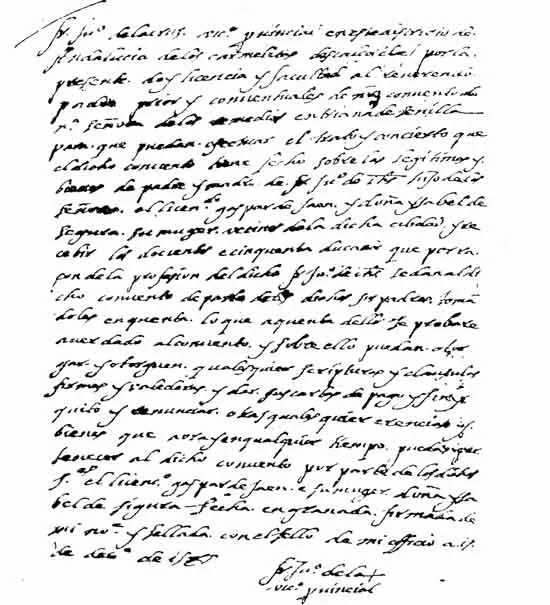 fr. Ju.º dela cruz. vic.º provincial en este districto de
Andalucia delos carmelitas descalços etc. por la
presente. doy licencia y facultad al Reverendo
padre prior y conventuales de nro convento de
n.ª señora de los Remedios en triana de sevilla
para que puedan efectuar el trato y concierto que
el dicho convento tiene hecho sobre las legitimas y
bienes de padre y madre. de fr. Ju.º de Jhs hijo delos
señores. el licen.do gaspar de Jaen. y doña ysabel de
segura. su muger. vecinos dela dicha cibdad y re
cebir los docientos e cinquenta ducados que por ra
çon dela profesion del dicho fr. Ju.º de Jhs le dan al di
cho convento de parte de los dichos sus padres. toman
doles en quenta. lo que a quenta dello se probare
aver dado al convento. y sobre ello puedan. otor
gar. y otorguen. qualesquier scripturas y clausulas
firmes y valederas. y dar. sus cartas de pago y finiq
quito y renunciar. otras quales quier erencias o
bienes que aora y en qualquier tiempo puedan per
tenecer al dicho convento por parte de los dichos
s.es el licen.do gaspar de Jaen. e su muger. doña ysa
bel de segura fecha. en granada. firmada de
mi no.e y sellada. con el sello de mi officio a
de de 1585
fr. Ju.º de la +
vic.º provincial